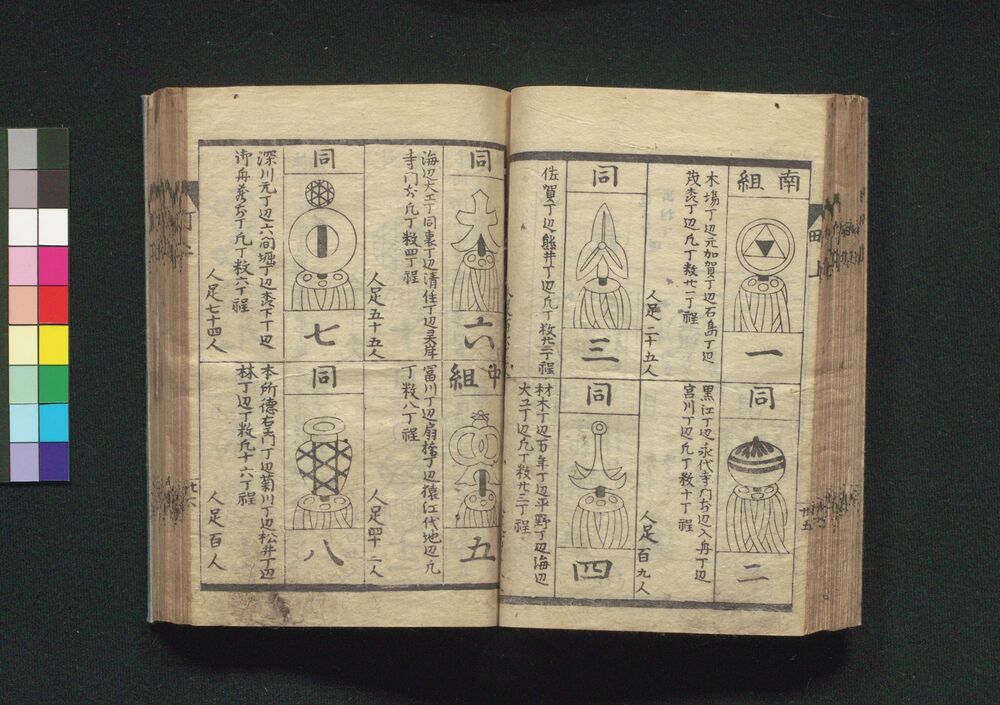 南組
一
木場丁辺元加賀丁辺石島丁辺
茂森丁辺凡丁数廿一丁程
人足二十五人
同
二
黒江丁辺永代寺門前辺入舟丁辺
宮川丁辺凡丁数十丁程
人足百九人
同
三
佐賀丁辺熊井丁辺凡丁数廿二丁程
同
四
材木丁辺万年丁辺平野丁辺海辺
大工丁辺凡丁数廿三丁程
同
六
海辺大工丁同裏丁辺清住丁辺灵岸
寺門前凡丁数四丁程
人足五十五人
中組
五
冨川丁辺扇橋丁辺猿江代地辺凡
丁数八丁程
人足四十二人
同
七
深川元丁辺六間堀丁辺森下丁辺
御舟蔵前丁凡丁数六丁程
人足七十四人
同
八
本所徳右門丁辺菊川丁辺松井丁辺
林丁辺丁数凡十六丁程
人足百人